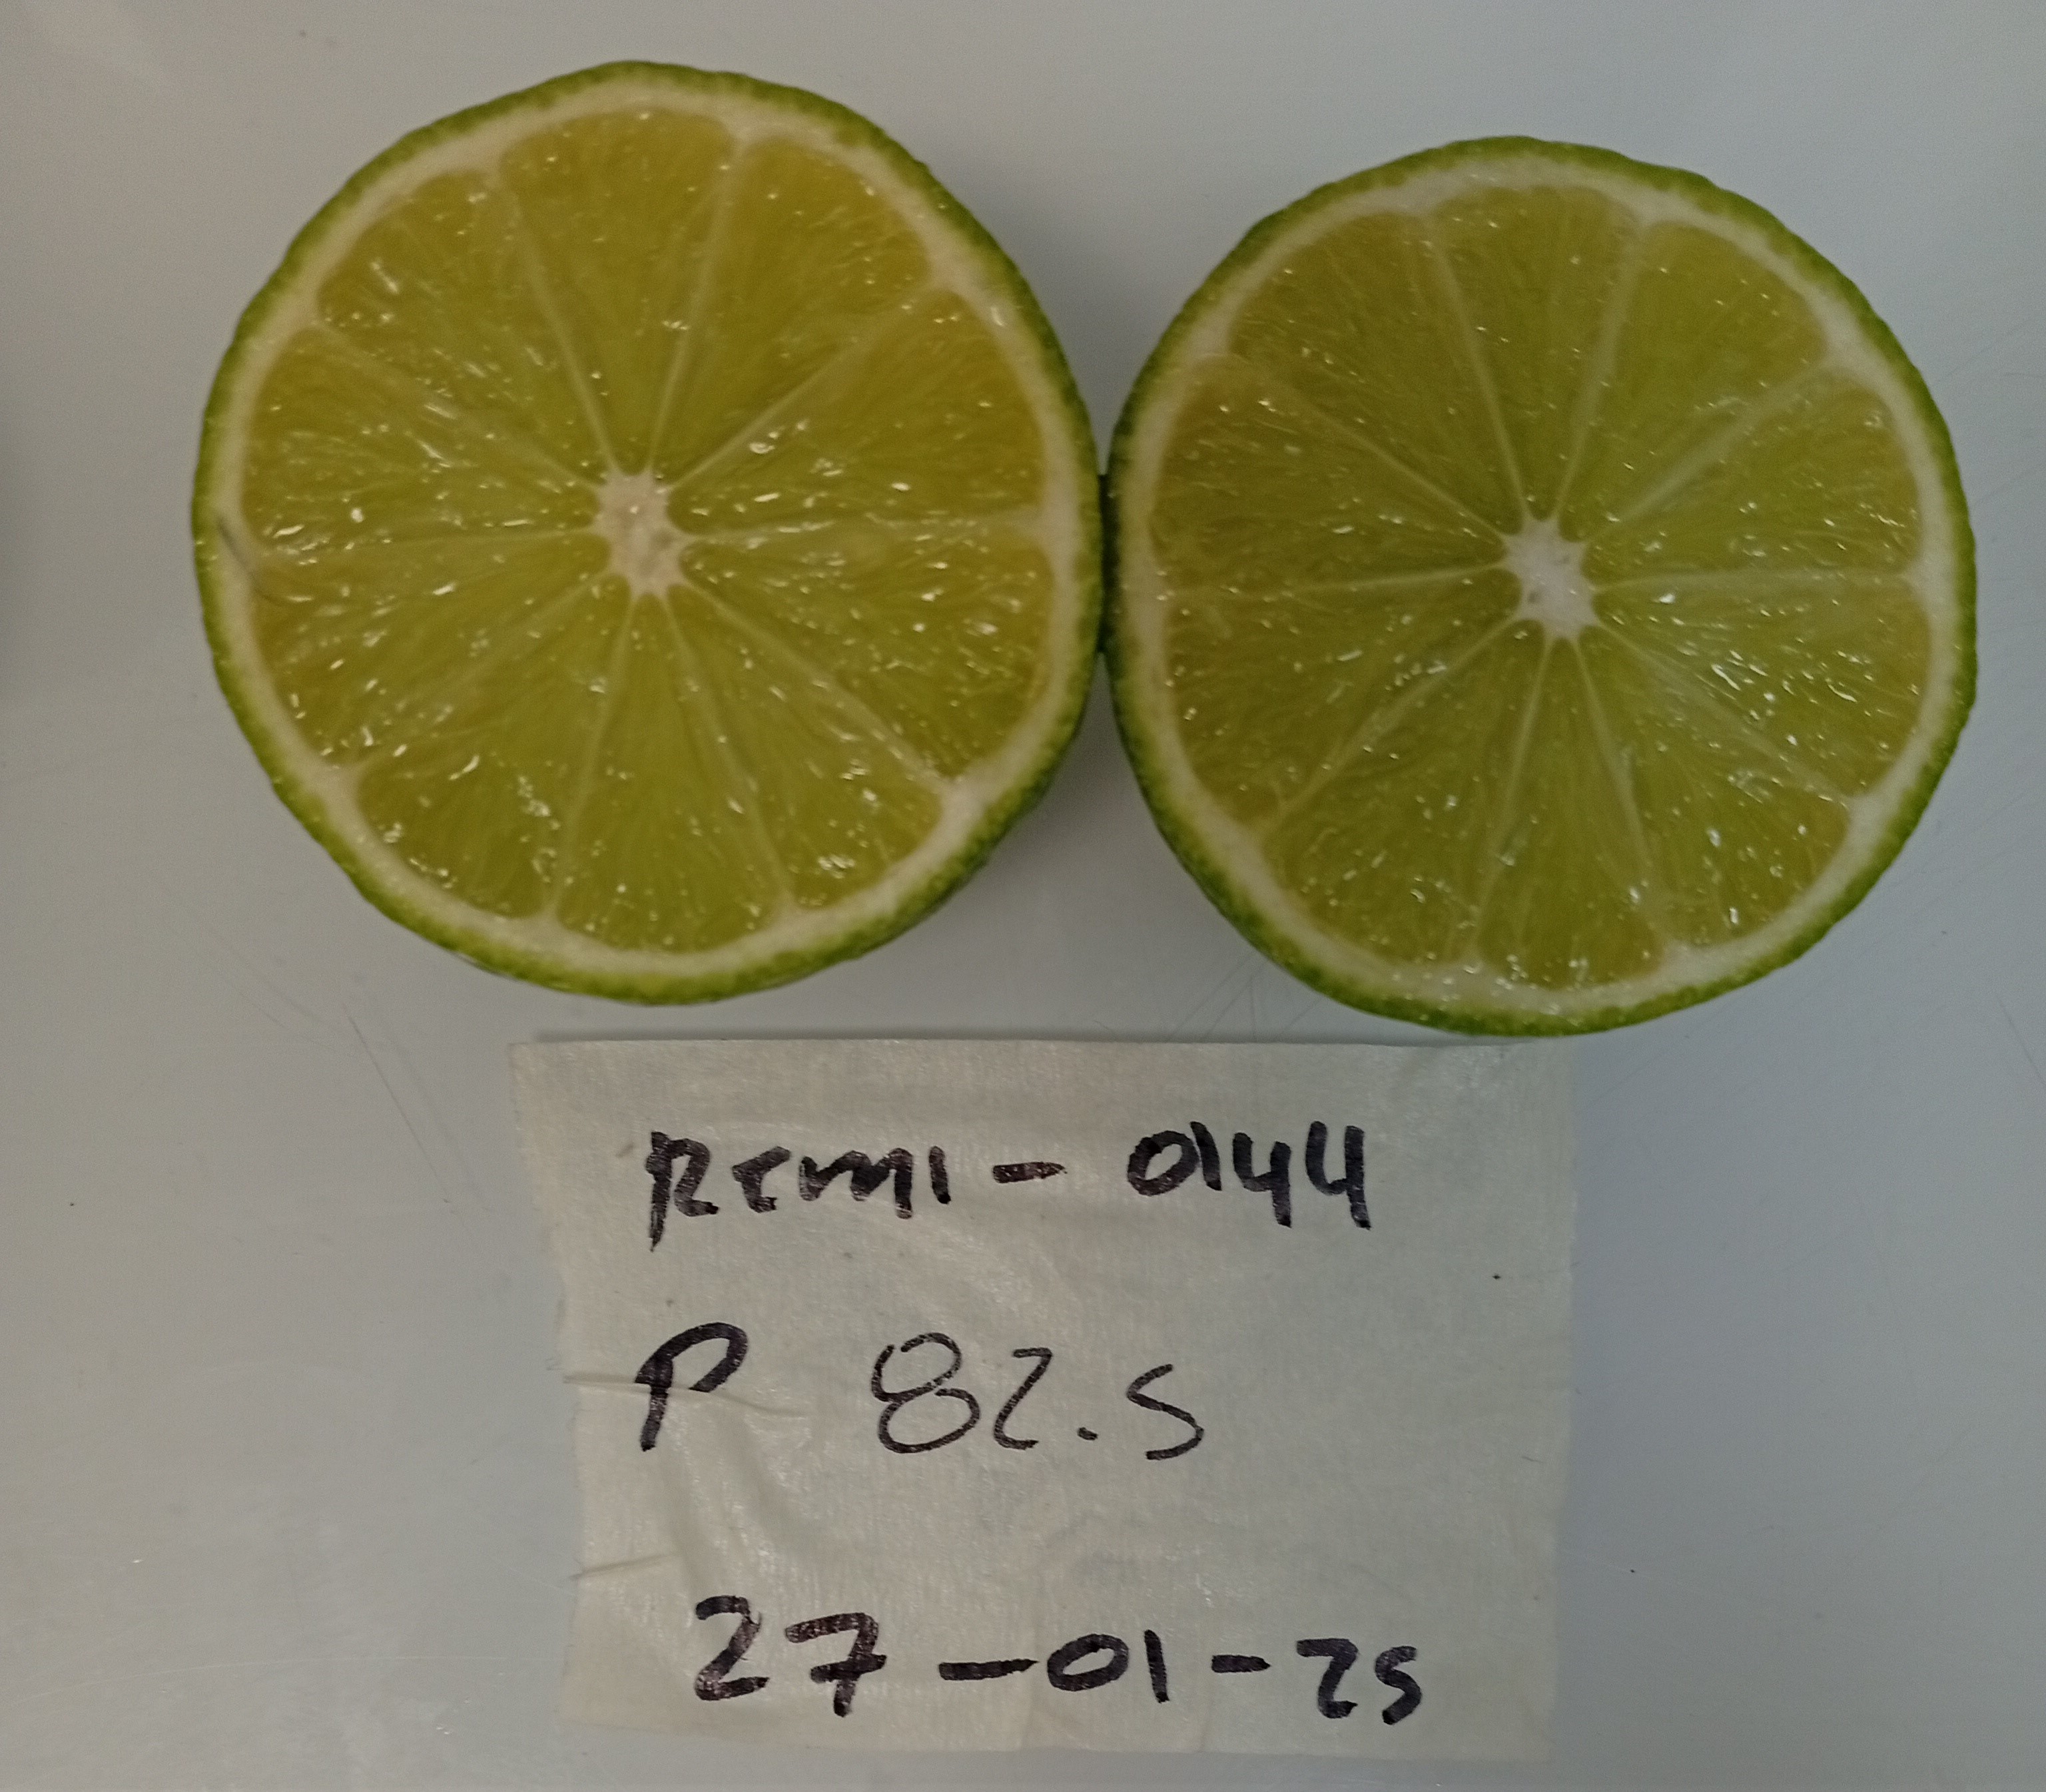 REMI - 0144
P 82.5
27-01-25